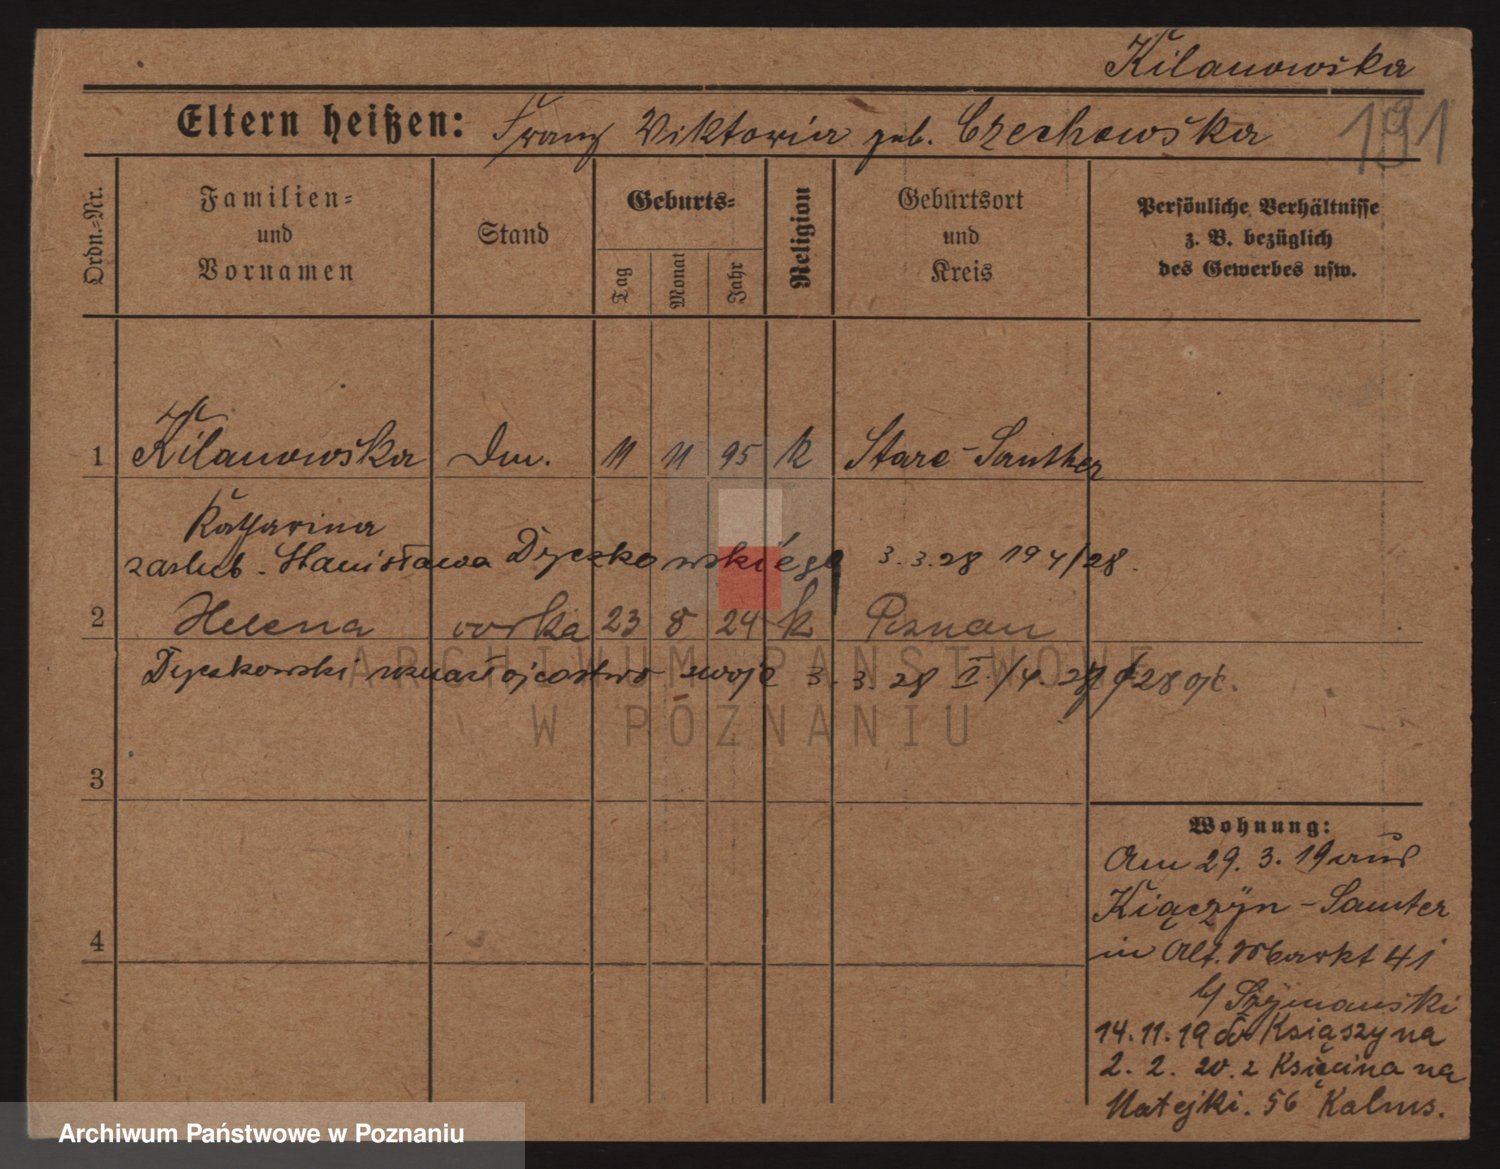 Kilanowska
191
Eltern heißen: Franz Viktoria geb. Czechowska
Ordn.=Nr.
Familien=
und
Vornamen
Stand
Geburts=
Tag
Monat
Jahr
Religion
Geburtsort
und
Kreis
Persönliche Verhältnisse
z. B. bezüglich
des Gewerbes usw.
1 Kilanowska Dm. 11 11 95 k Stare-Samther
Katharina
zaslub. Stanisława Dyczkowskiego 3.3.28 194/28.
2 Helena córka 23 8 24 k Poznan
Dyczkowski uznał ojcostwo swoje 3.3.28
3
4
Wohnung:
Am 29. 3. 19 aus
Kiączyn - Samter
in Alt. Markt 41
b/ Szymanski
14.11.19 do Książyna
2. 2. 20. z Księcina na
Matejki. 56 Kalms.
ARCHIWUM PAŃSTWOWE
W POZNANIU
Archiwum Państwowe w Poznaniu